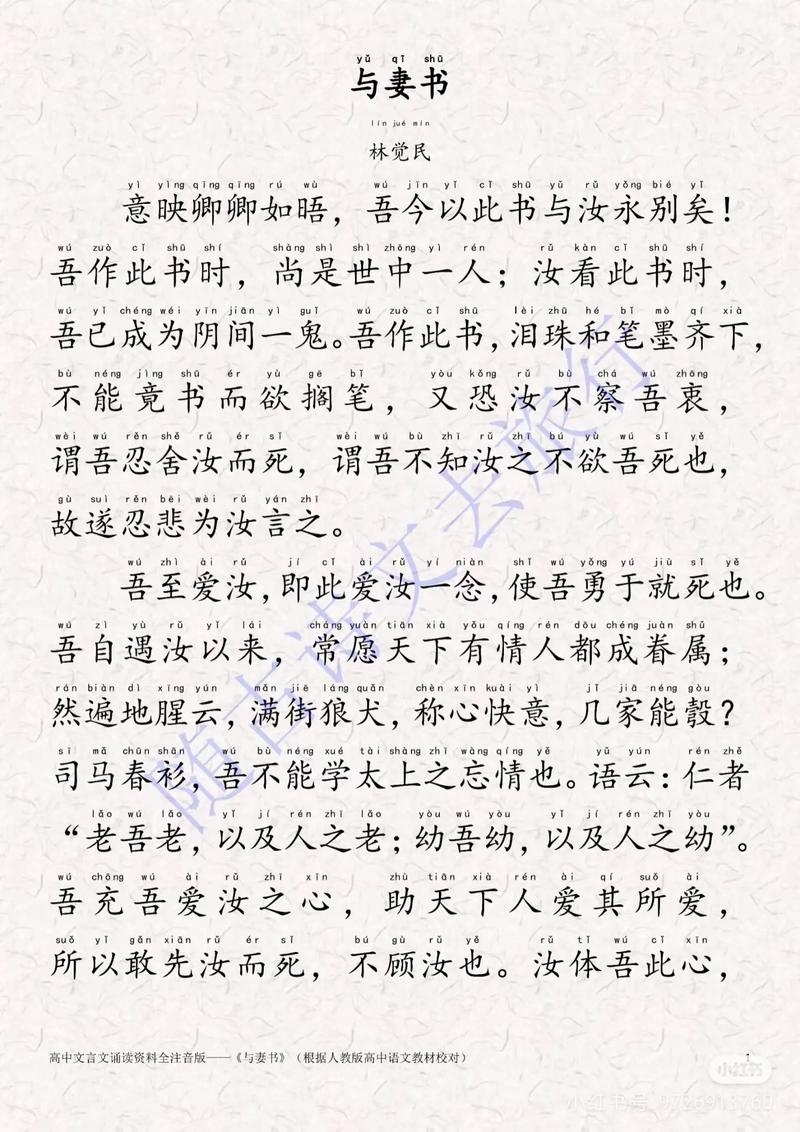 yǔ qī shū
与妻书
lín jué mín
林觉民
yì yìng qīng qīng rú wù wú jīn yǐ cǐ shū yǔ rǔ yǒng bié yǐ
意映卿卿如晤，吾今以此书与汝永别矣！
wú zuò cǐ shū shí shàng shì shì zhōng yì rén rǔ kàn cǐ shū shí
吾作此书时，尚是世中一人；汝看此书时，
wú yǐ chéng wéi yīn jiān yì guǐ wú zuò cǐ shū lèi zhū hé bǐ mò qí xià
吾已成为阴间一鬼。吾作此书，泪珠和笔墨齐下，
bù néng jìng shū ér yù gē bǐ yòu kǒng rǔ bù chá wú zhōng
不能竟书而欲搁笔，又恐汝不察吾衷，
wèi wú rěn shě rǔ ér sǐ wèi wú bù zhī rǔ zhī bú yù wú sǐ yě
谓吾忍舍汝而死，谓吾不知汝之不欲吾死也，
gù suì rěn bēi wèi rǔ yán zhī
故遂忍悲为汝言之。
wú zhì ài rǔ jí cǐ ài rǔ yí niàn shǐ wú yǒng yú jiù sǐ yě
吾至爱汝，即此爱汝一念，使吾勇于就死也。
wú zì yù rǔ yǐ lái cháng yuàn tiān xià yǒu qíng rén dōu chéng juàn shǔ
吾自遇汝以来，常愿天下有情人都成眷属；
rán biàn dì xīng yún mǎn jiē láng quǎn chèn xīn kuài yì jǐ jiā néng gòu
然遍地腥云，满街狼犬，称心快意，几家能彀？
sī mǎ chūn shān wú bù néng xué tài shàng zhī wàng qíng yě yǔ yún rén zhě
司马春衫，吾不能学太上之忘情也。语云：仁者
lǎo wú lǎo yǐ jí rén zhī lǎo yòu wú yòu yǐ jí rén zhī yòu
“老吾老，以及人之老；幼吾幼，以及人之幼”。
wú chōng wú ài rǔ zhī xīn zhù tiān xià rén ài qí suǒ ài
吾充吾爱汝之心，助天下人爱其所爱，
suǒ yǐ gǎn xiān rǔ ér sǐ bú gù rǔ yě rǔ tǐ wú cǐ xīn
所以敢先汝而死，不顾汝也。汝体吾此心，
随古诗文去旅行
高中文言文诵读资料全注音版——《与妻书》（根据人教版高中语文教材校对）
1
小红书
小红书号 9726913760